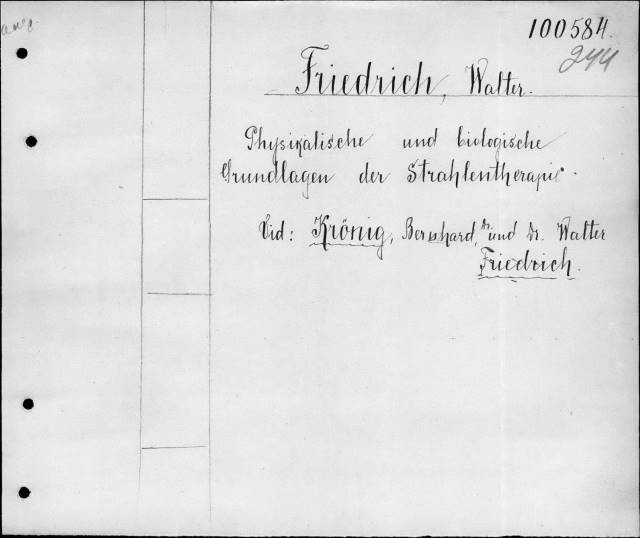 100584.
244
Friedrich, Walter.
Physikalische und biologische
Grundlagen der Strahlentherapie.
Vid: Krönig, Bernhard, und Dr. Walter
Friedrich.